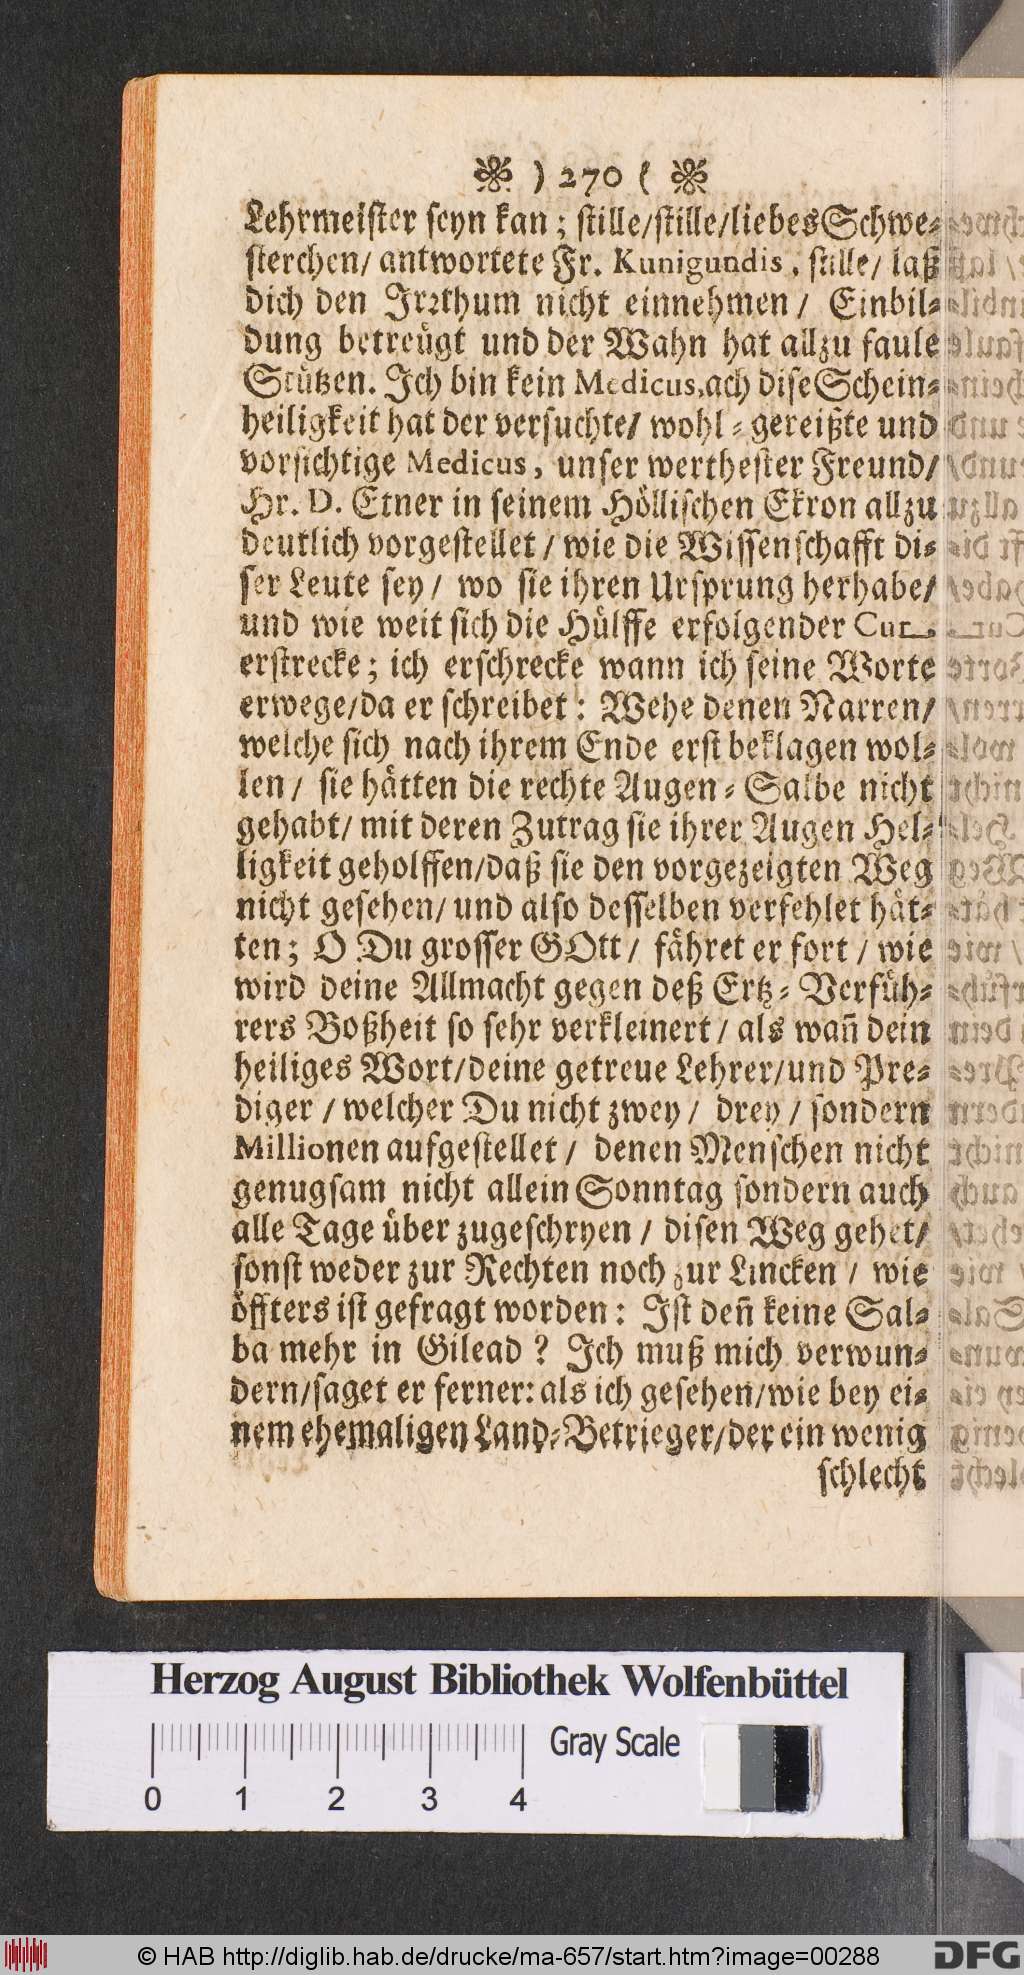 ) 270 (
Lehrmeister seyn kan; stille/stille/liebes Schwe-
sterchen/ antwortete Fr. Kunigundis, stille/ laß
dich den Irꝛthum nicht einnehmen/ Einbil-
dung betreügt und der Wahn hat allzu faule
Stützen. Ich bin kein Medicus, ach dise Schein-
heiligkeit hat der versuchte/ wohl-gereißte und
vorsichtige Medicus, unser werthester Freund/
Hr. D. Etner in seinem Höllischen Ekron allzu
deutlich vorgestellet/ wie die Wissenschafft di-
ser Leute sey/ wo sie ihren Ursprung herhabe/
und wie weit sich die Hülffe erfolgender
erstrecke; ich erschrecke wann ich seine Worte
erwege/da er schreibet: Wehe denen Narren/
welche sich nach ihrem Ende erst beklagen wol-
len/ sie hätten die rechte Augen-Salbe nicht
gehabt/ mit deren Zutrag sie ihrer Augen Hel-
ligkeit geholffen/daß sie den vorgezeigten Weg
nicht gesehen/ und also desselben verfehlet hät-
ten; O Du grosser GOtt/ fähret er fort/ wie
wird deine Allmacht gegen deß Ertz-Verfüh-
rers Boßheit so sehr verkleinert/ als wañ dein
heiliges Wort/deine getreue Lehrer/und Pre-
diger/ welcher Du nicht zwey/ drey/ sondern
Millionen aufgestellet/ denen Menschen nicht
genugsam nicht allein Sonntag sondern auch
alle Tage über zugeschryen/ disen Weg gehet/
sonst weder zur Rechten noch zur Lincken/ wie
öffters ist gefragt worden: Ist deñ keine Sal-
ba mehr in Gilead? Ich muß mich verwun-
dern/saget er ferner: als ich gesehen/wie bey ei-
nem ehemaligen Land-Betrieger/der ein wenig
schlecht
Herzog August Bibliothek Wolfenbüttel
Gray Scale
0 1 2 3 4
© HAB http://diglib.hab.de/drucke/ma-657/start.htm?image=00288
DFG